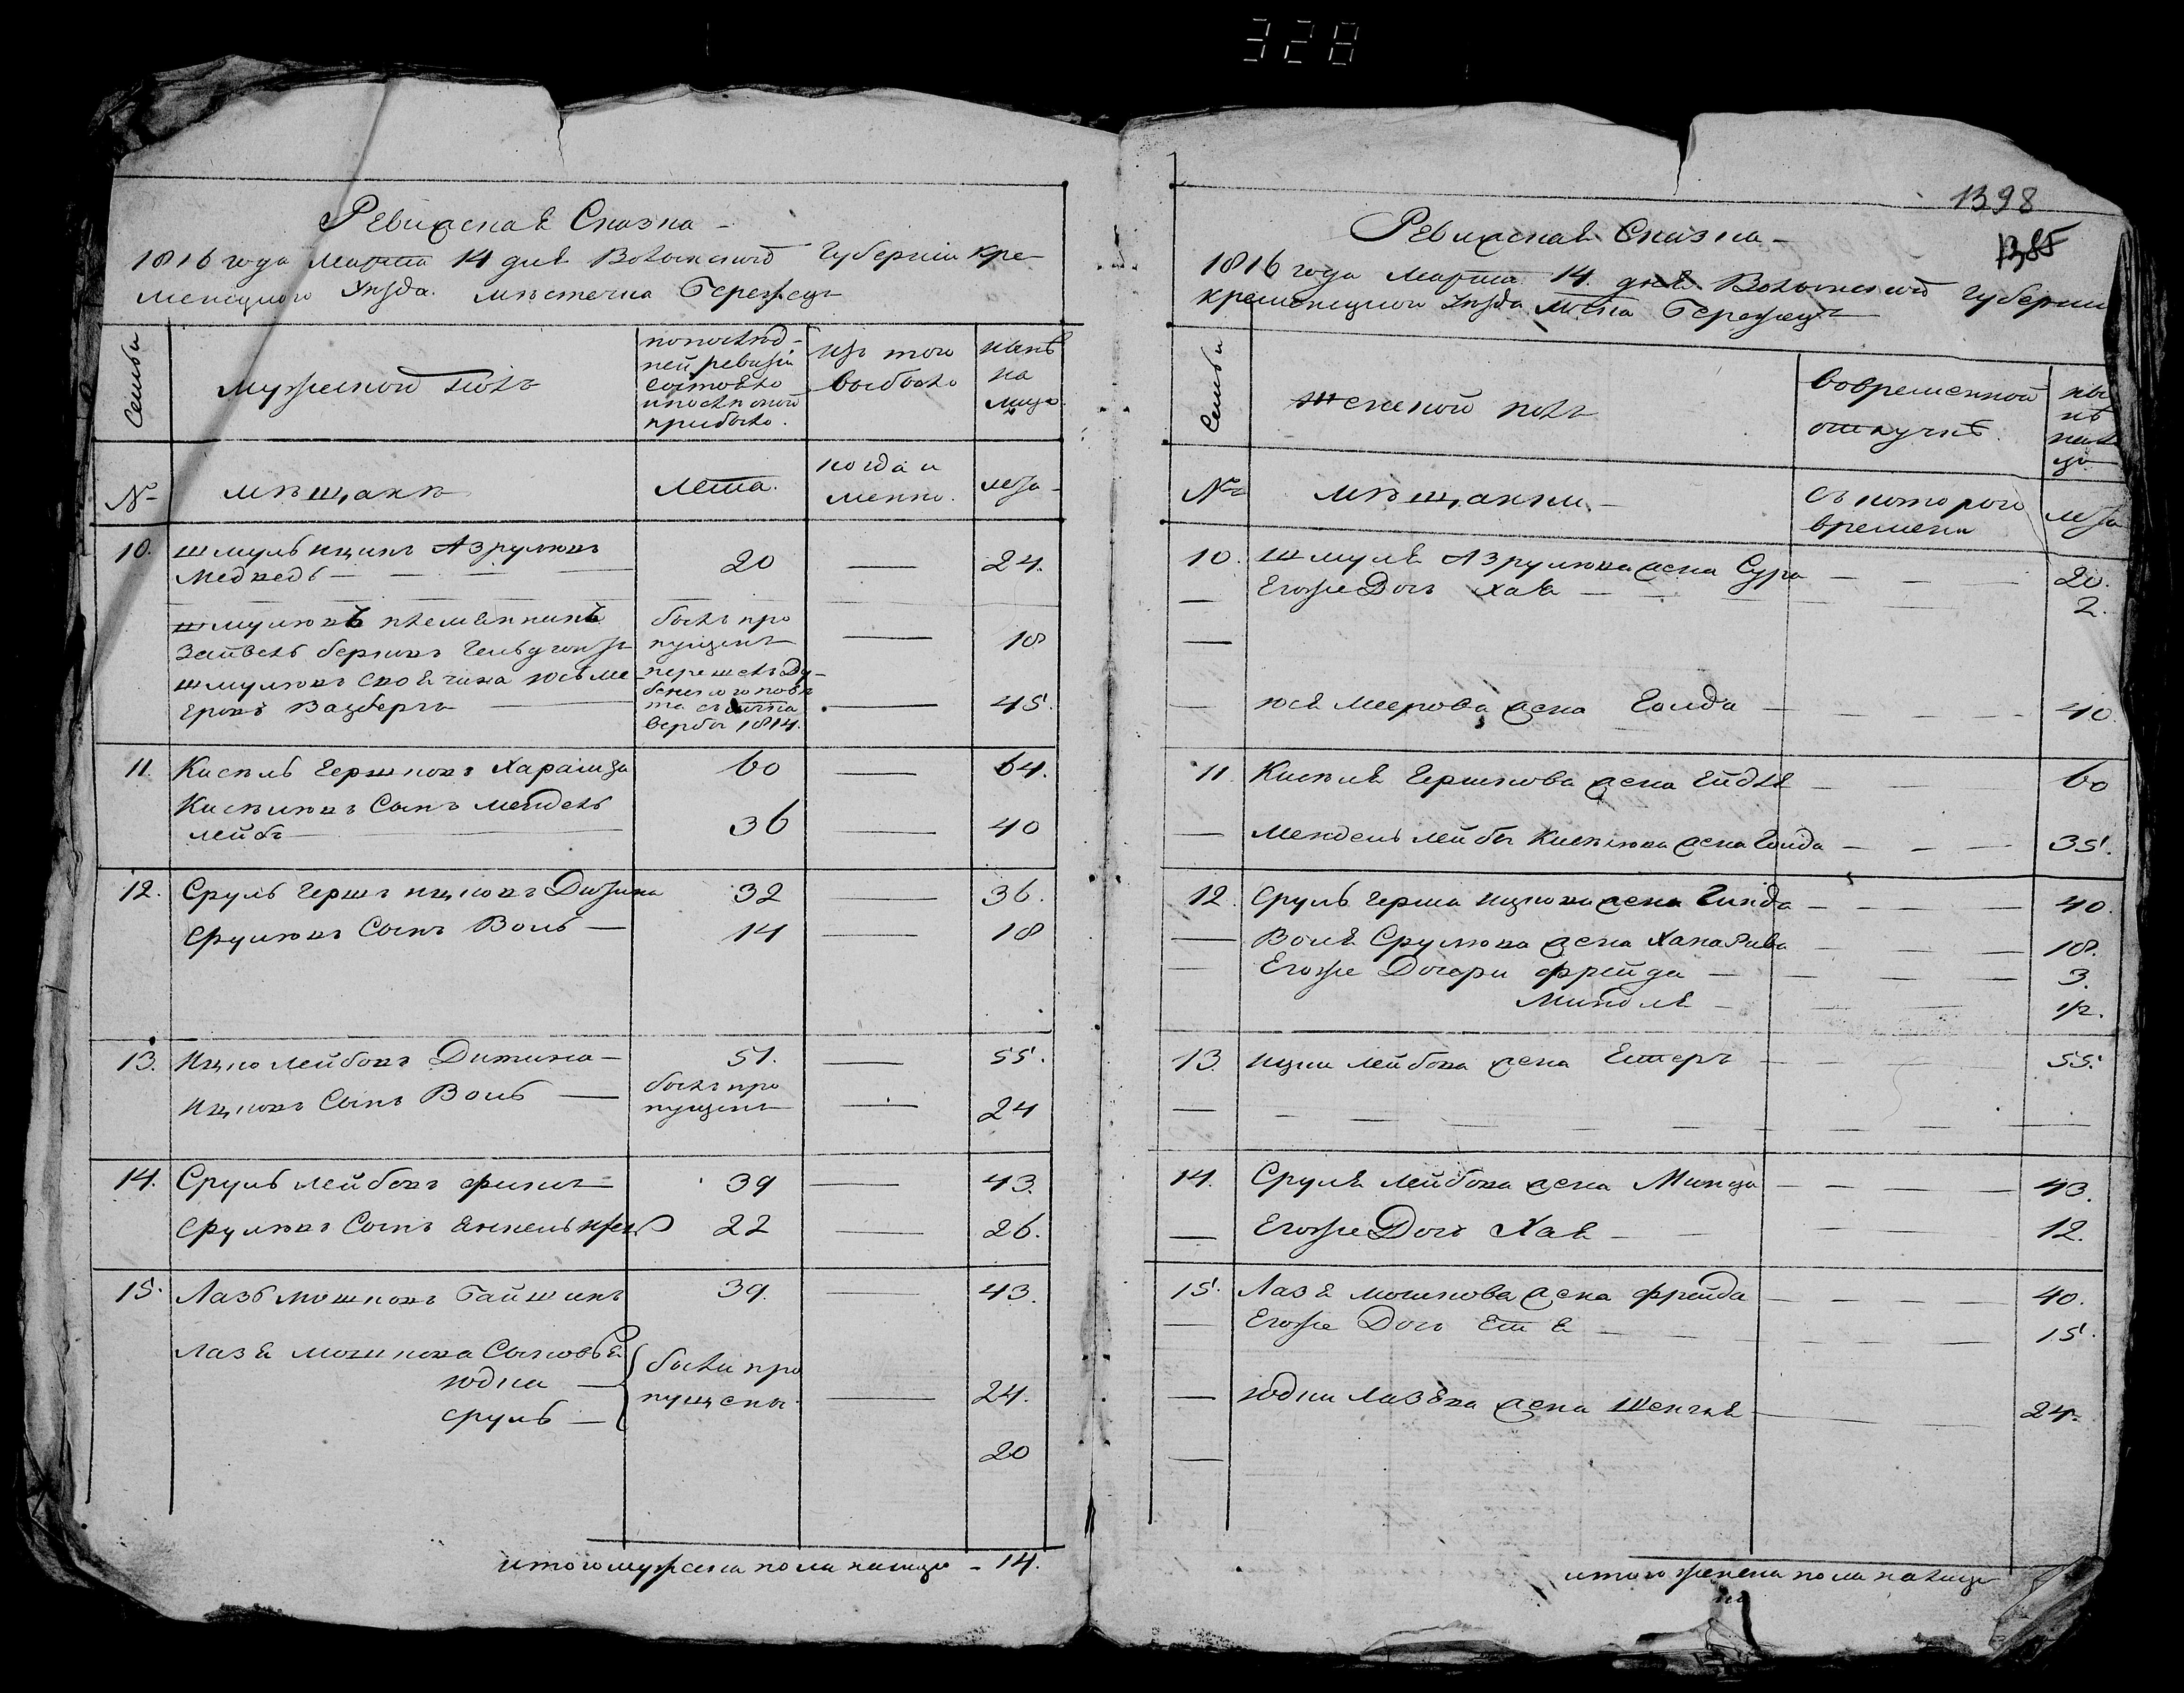 328
Ревизская Сказка
1816 года Марта 14 дня Волынской Губернии Кре-
менецкого Уезда. местечка Бережец
Семьи
мужеской полъ
попослед-
ней ревизіи
состояло
и после оной
прибыло.
изъ того
выбыло
ныне
на
лицо
№
мещане
лета.
когда и
менно.
лета
10.
шмуль ицикъ Азрулювъ
Медведь
20
24.
шмулювъ племянникъ
былъ про
пущенъ
18
Зейвель берковъ
шмулювъ
перешелъ Ду-
бенского пове
та съ
вербы 1814.
45.
11.
Кисель Гершковъ
60
64.
Киселювъ Сынъ мендель
лейбъ
36
40
12.
Сруль Гершъ ицковъ
32
36.
Срулювъ Сынъ Воль
14
18
13.
Ицко лейбовъ Дитина
51.
55.
Ицковъ Сынъ Воль
былъ про
пущенъ
24
14.
Сруль лейбовъ финкъ
39
43.
Срулювъ Сынъ янкель
22
26.
15.
Лазь мошковъ
39.
43.
Лазя мошкова Сыновья
юдка
были про
24.
сруль
пущены.
20
итого мужеска пола налицо - 14.
1398
1385
Ревизская Сказка
1816 года Марта 14. дня Волынской Губернии
кременецкои Уезда мѣстка Бережец
Семьи
женской полъ
вовременной
отлучке
ны
не
нали
цо
№
мещанки
съ которого
времени
лета
10.
шмуля Азрулюва жена Сура
20.
Егоже Дочь Хая
2.
юся меерова жена Голда
40.
11.
Киселя Гершкова жена Ейдля
60
мендель лейбы Киселюва жена Голда
35.
12.
Сруль герша ицкова жена Гинда
40.
Воля Срулюва жена Ханарива
18.
Егоже Дочери фрейда
3.
Минделя
1/2.
13.
ицки лейбова жена Естеръ
55.
14.
Сруля лейбова жена Минца
43.
Егоже Дочь Хая
12.
15.
Лазя мошкова жена фрейда
40.
Егоже Дочь Етя
15.
юдки Лазова жена Шенгля
24.
итого женска пола налицо